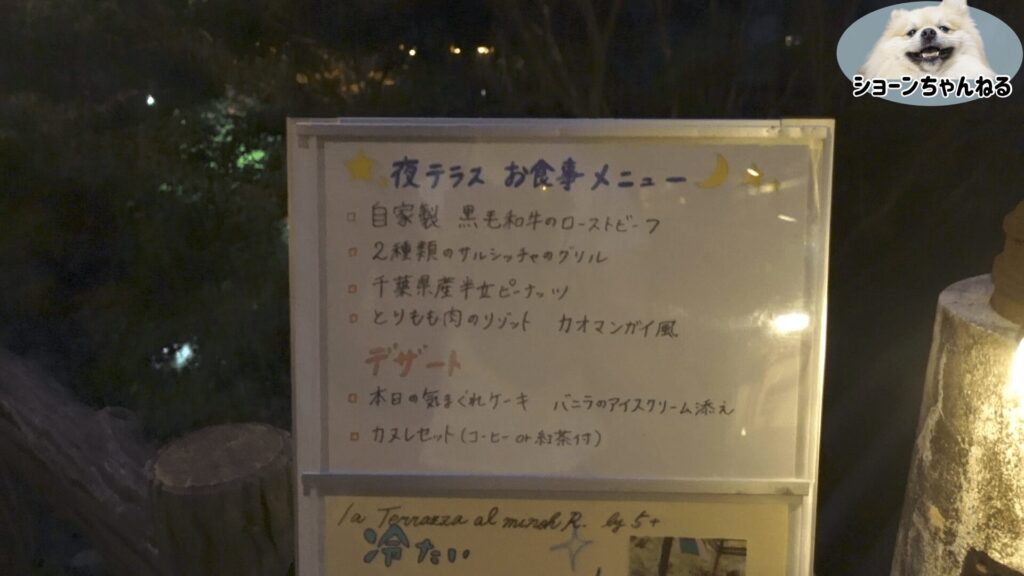 ショーンちゃんねる
夜テラス お食事メニュー
自家製 黒毛和牛のローストビーフ
2種類のサルシッチャのグリル
千葉県産半立ピーナッツ
とりもも肉のリゾット カオマンガイ風
デザート
本日の気まぐれケーキ バニラのアイスクリーム添え
カヌレセット(コーヒー or 紅茶付)
la Terrazza al R. by 5+
冷たい